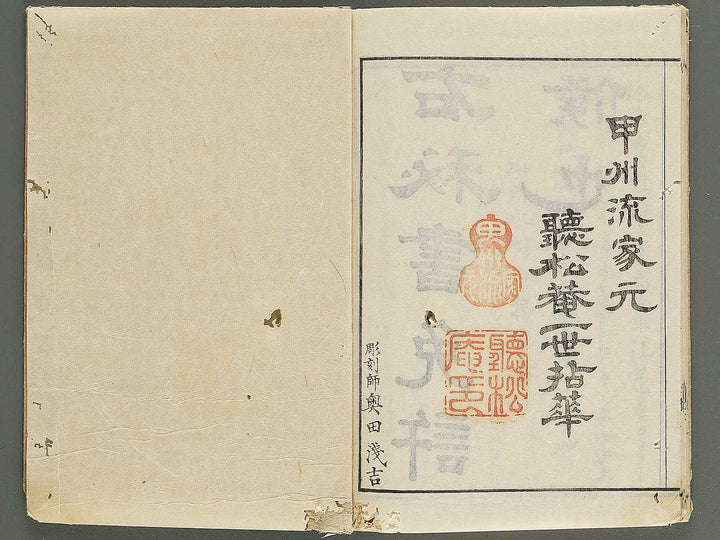 甲州流家元
聽松菴一世拈華
聽松
庵印
彫刻師奥田淺吉